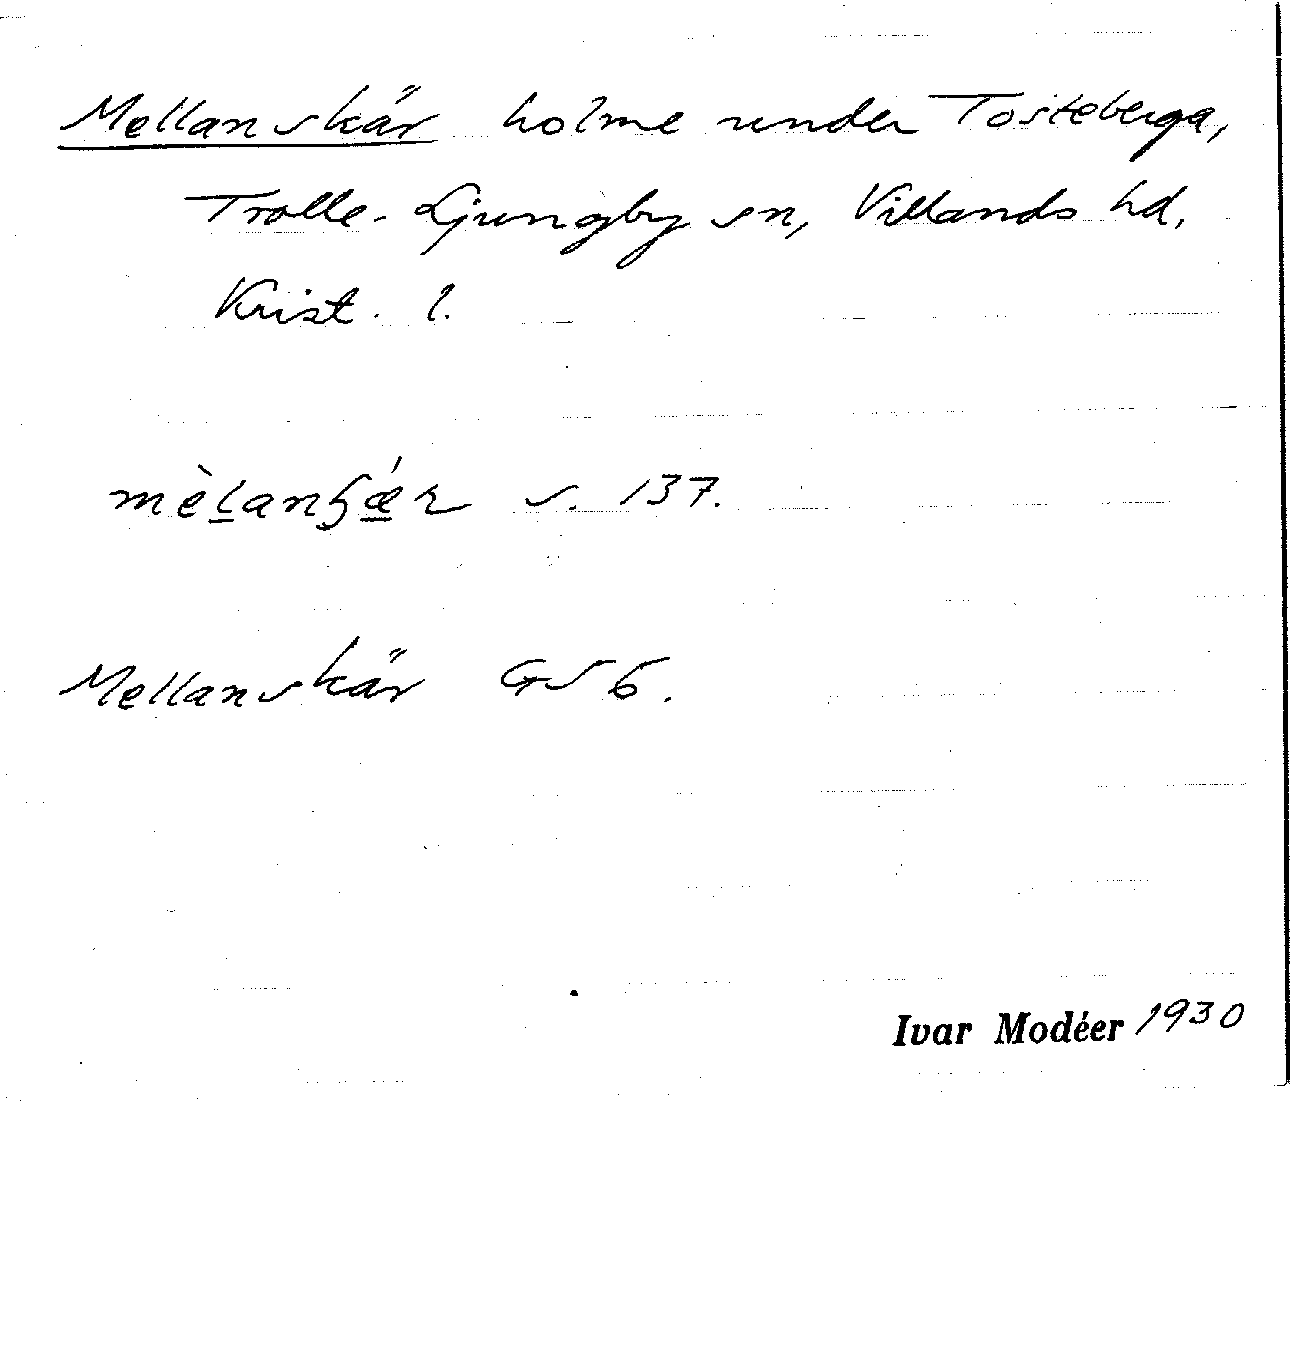 Mellanskär holme under Tosteberga,
Trolle-Ljungby sn, Villands hd,
Krist. l.
mèlanʂǽr s. 137.
Mellanskär GS 6.
Ivar Modéer 1930